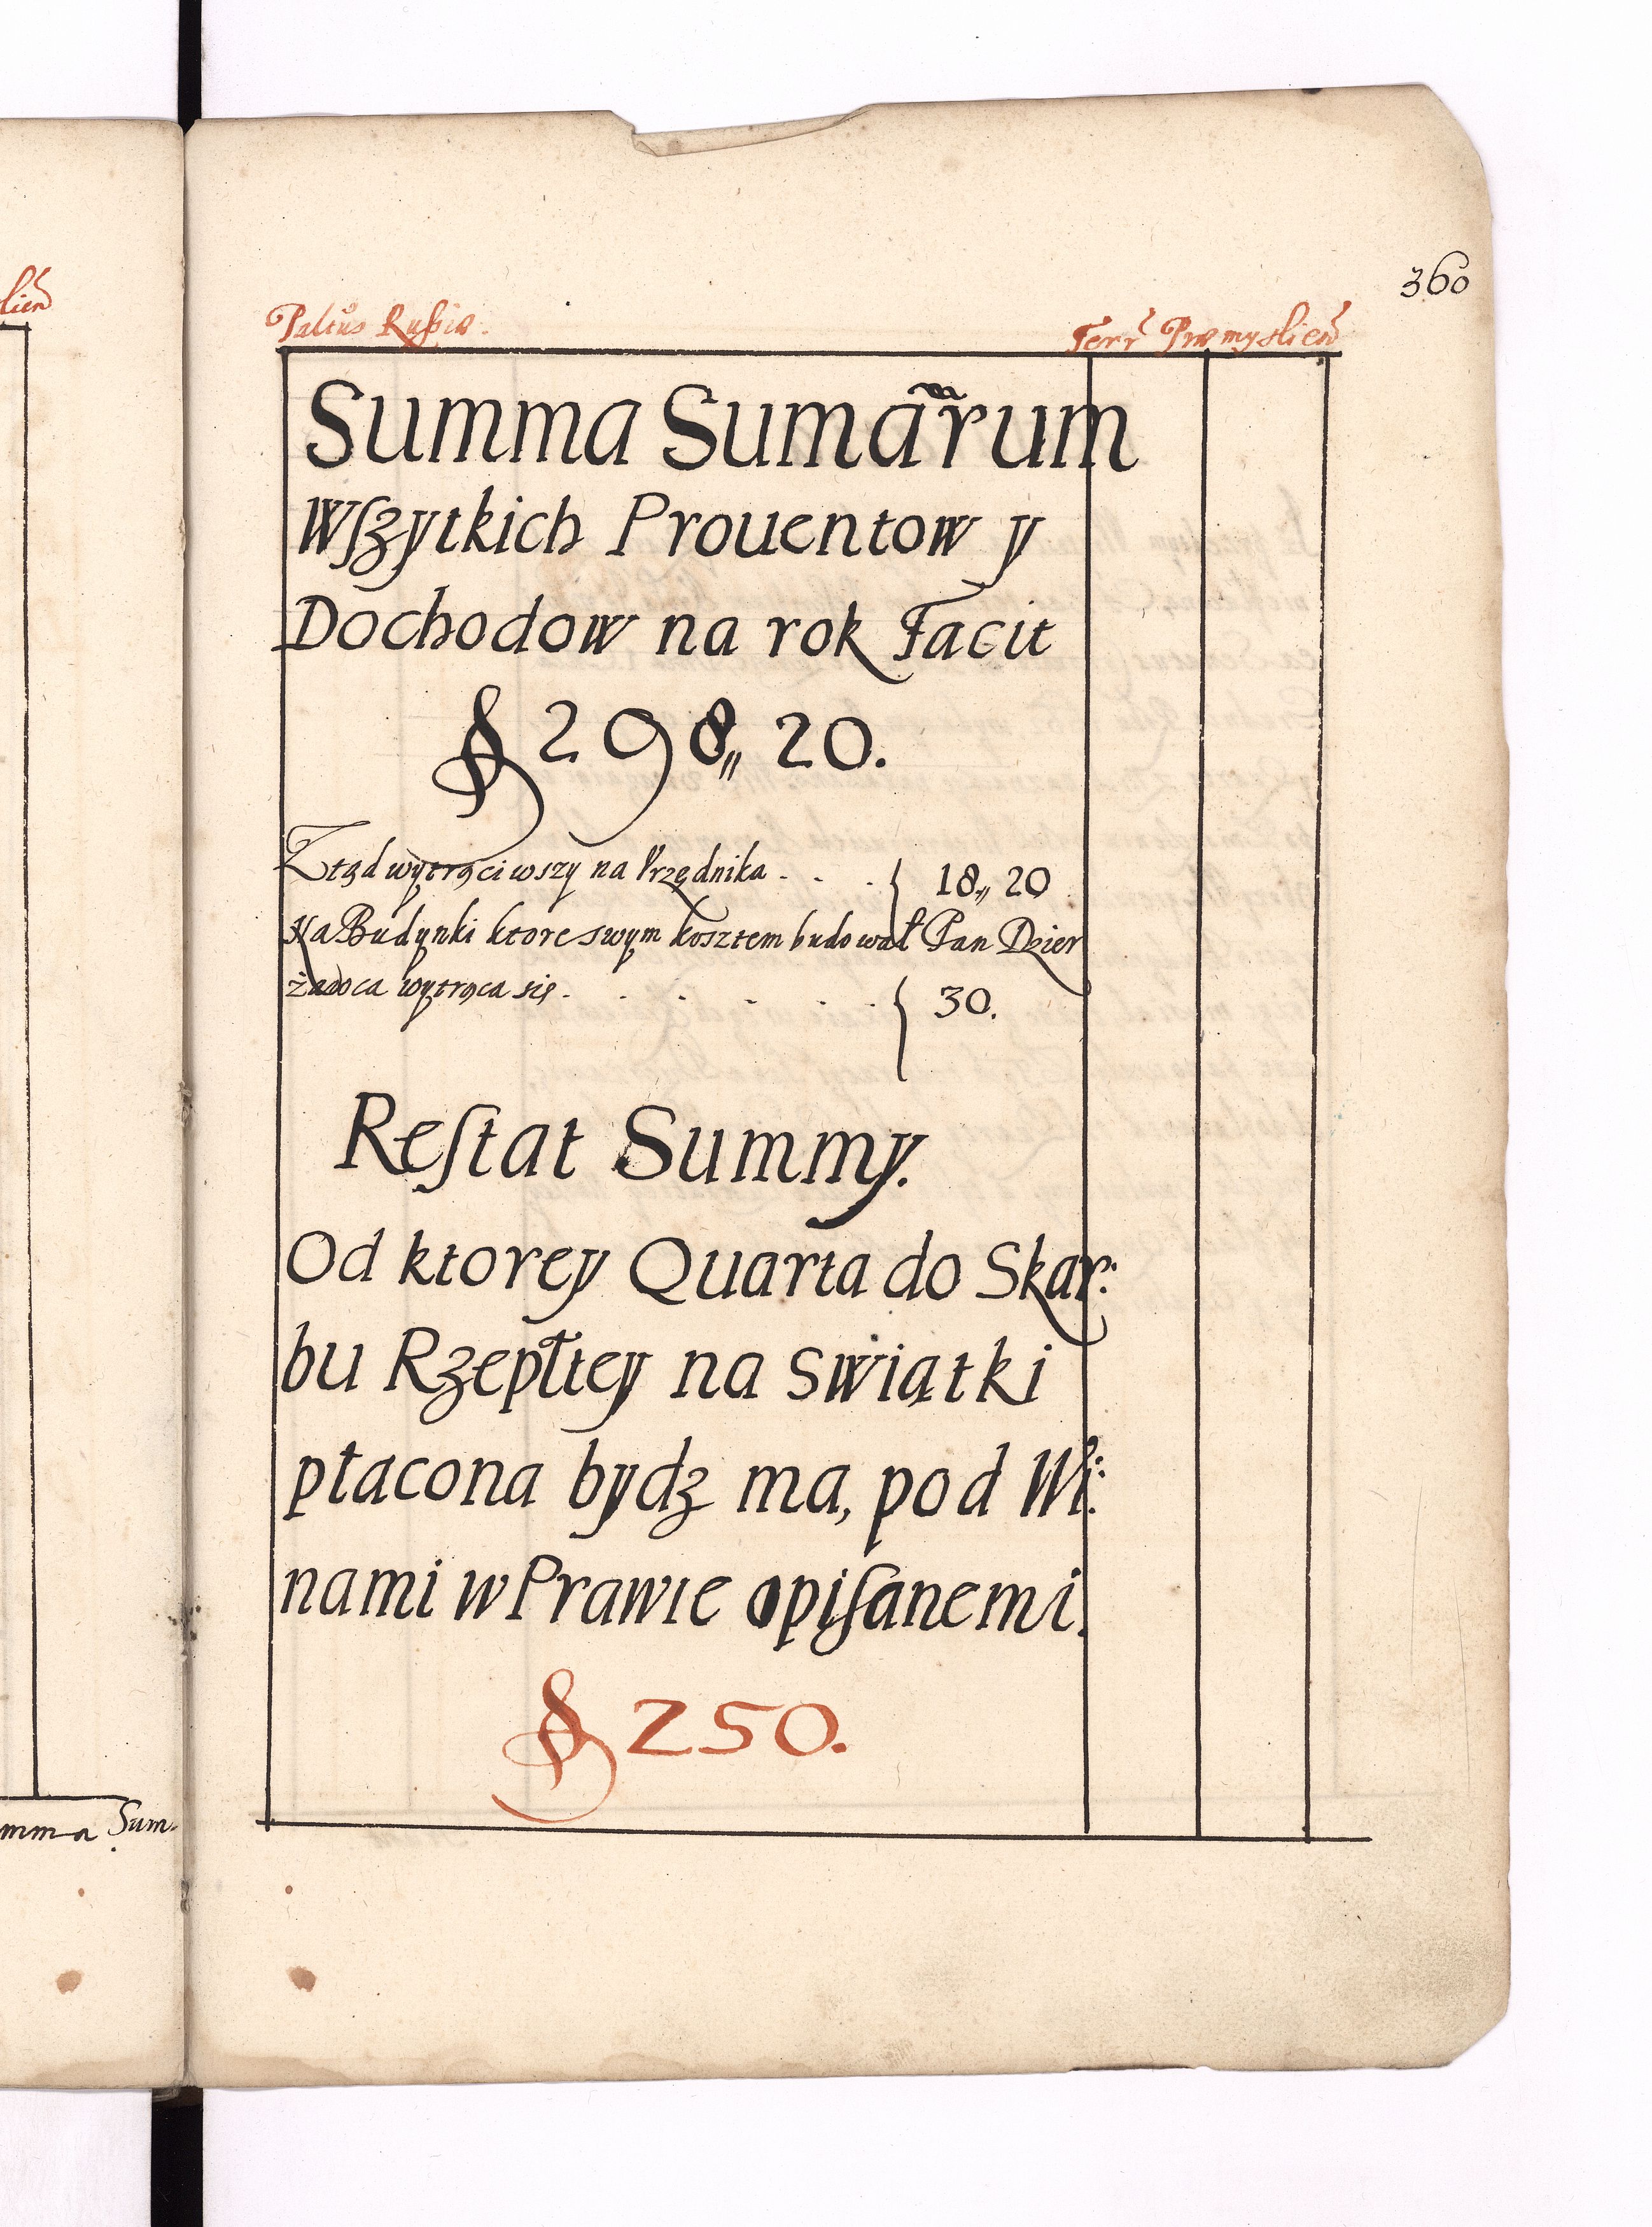 lień
360
Paltus Russiæ.
Terr Præmysłień
Summa Sumarum
Wszytkich Prouentow y
Dochodow na rok Facit
§ 298,, 20.
Ztąd wytrąciwszy na Vrzędnika . . . { 18,, 20
Na Budynki ktore swym kosztem budował Pan Dzier
żawca wytrąca się . . . . . . { 30.
Restat Summy.
Od ktorey Quarta do Skar:
bu Rzepltey na swiątki
płacona bydz ma, pod Wi:
nami w Prawie opisanemi.
§ 250.
mma Sum-